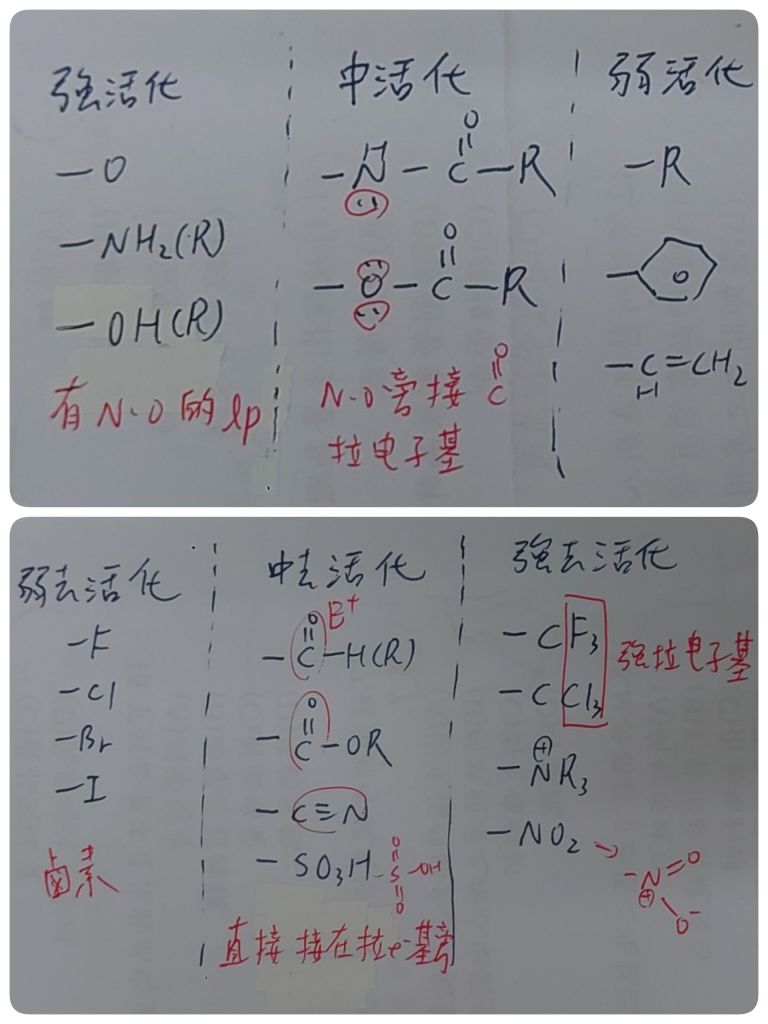 強活化
—O
—NH₂(R)
—OH(R)
有N、O的lp
中活化
O
H
—N—C—R
O
—O—C—R
N、O旁接
O
C
拉電子基
弱活化
—R
—C=CH₂
H
弱去活化
—F
—Cl
—Br
—I
鹵素
中去活化
O
E⁺
—C—H(R)
O
—C—OR
—C≡N
—SO₃H
O
S—OH
O
直接接在拉e⁻基旁
強去活化
—CF₃
—CCl₃
強拉電子基
⊕
—NR₃
—NO₂ →
—N=O
⊕
O⁻